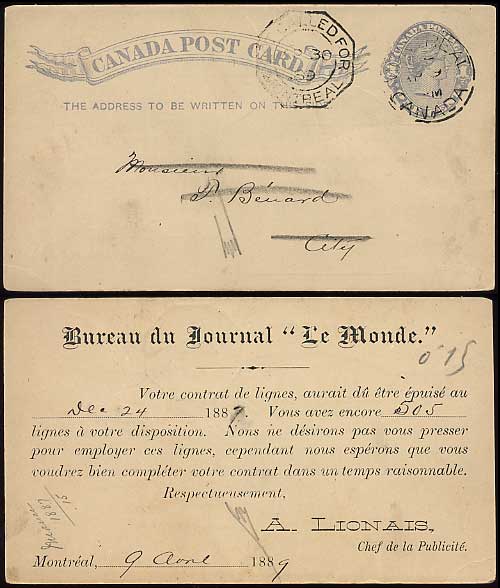 CANADA POST CARD
THE ADDRESS TO BE WRITTEN ON THIS
CALLED FOR
30
89
MONTREAL
CANADA POST CARD
MONTREAL
CANADA
Monsieur
Bénard
City
Bureau du Journal "Le Monde."
0'15
Votre contrat de lignes, aurait dû être épuisé au
Dec 24 1887. Vous avez encore 505
lignes à votre disposition. Nous ne désirons pas vous presser
pour employer ces lignes, cependant nous espérons que vous
voudrez bien compléter votre contrat dans un temps raisonnable.
Respectueusement,
A. LIONAIS,
Chef de la Publicité.
15
1889
Montréal, 9 Avril 1889